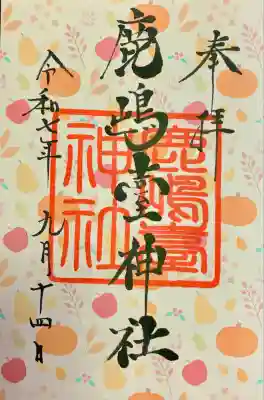 奉拝
鹿嶋臺神社
鹿嶋臺神社
令和七年 九月 十四日